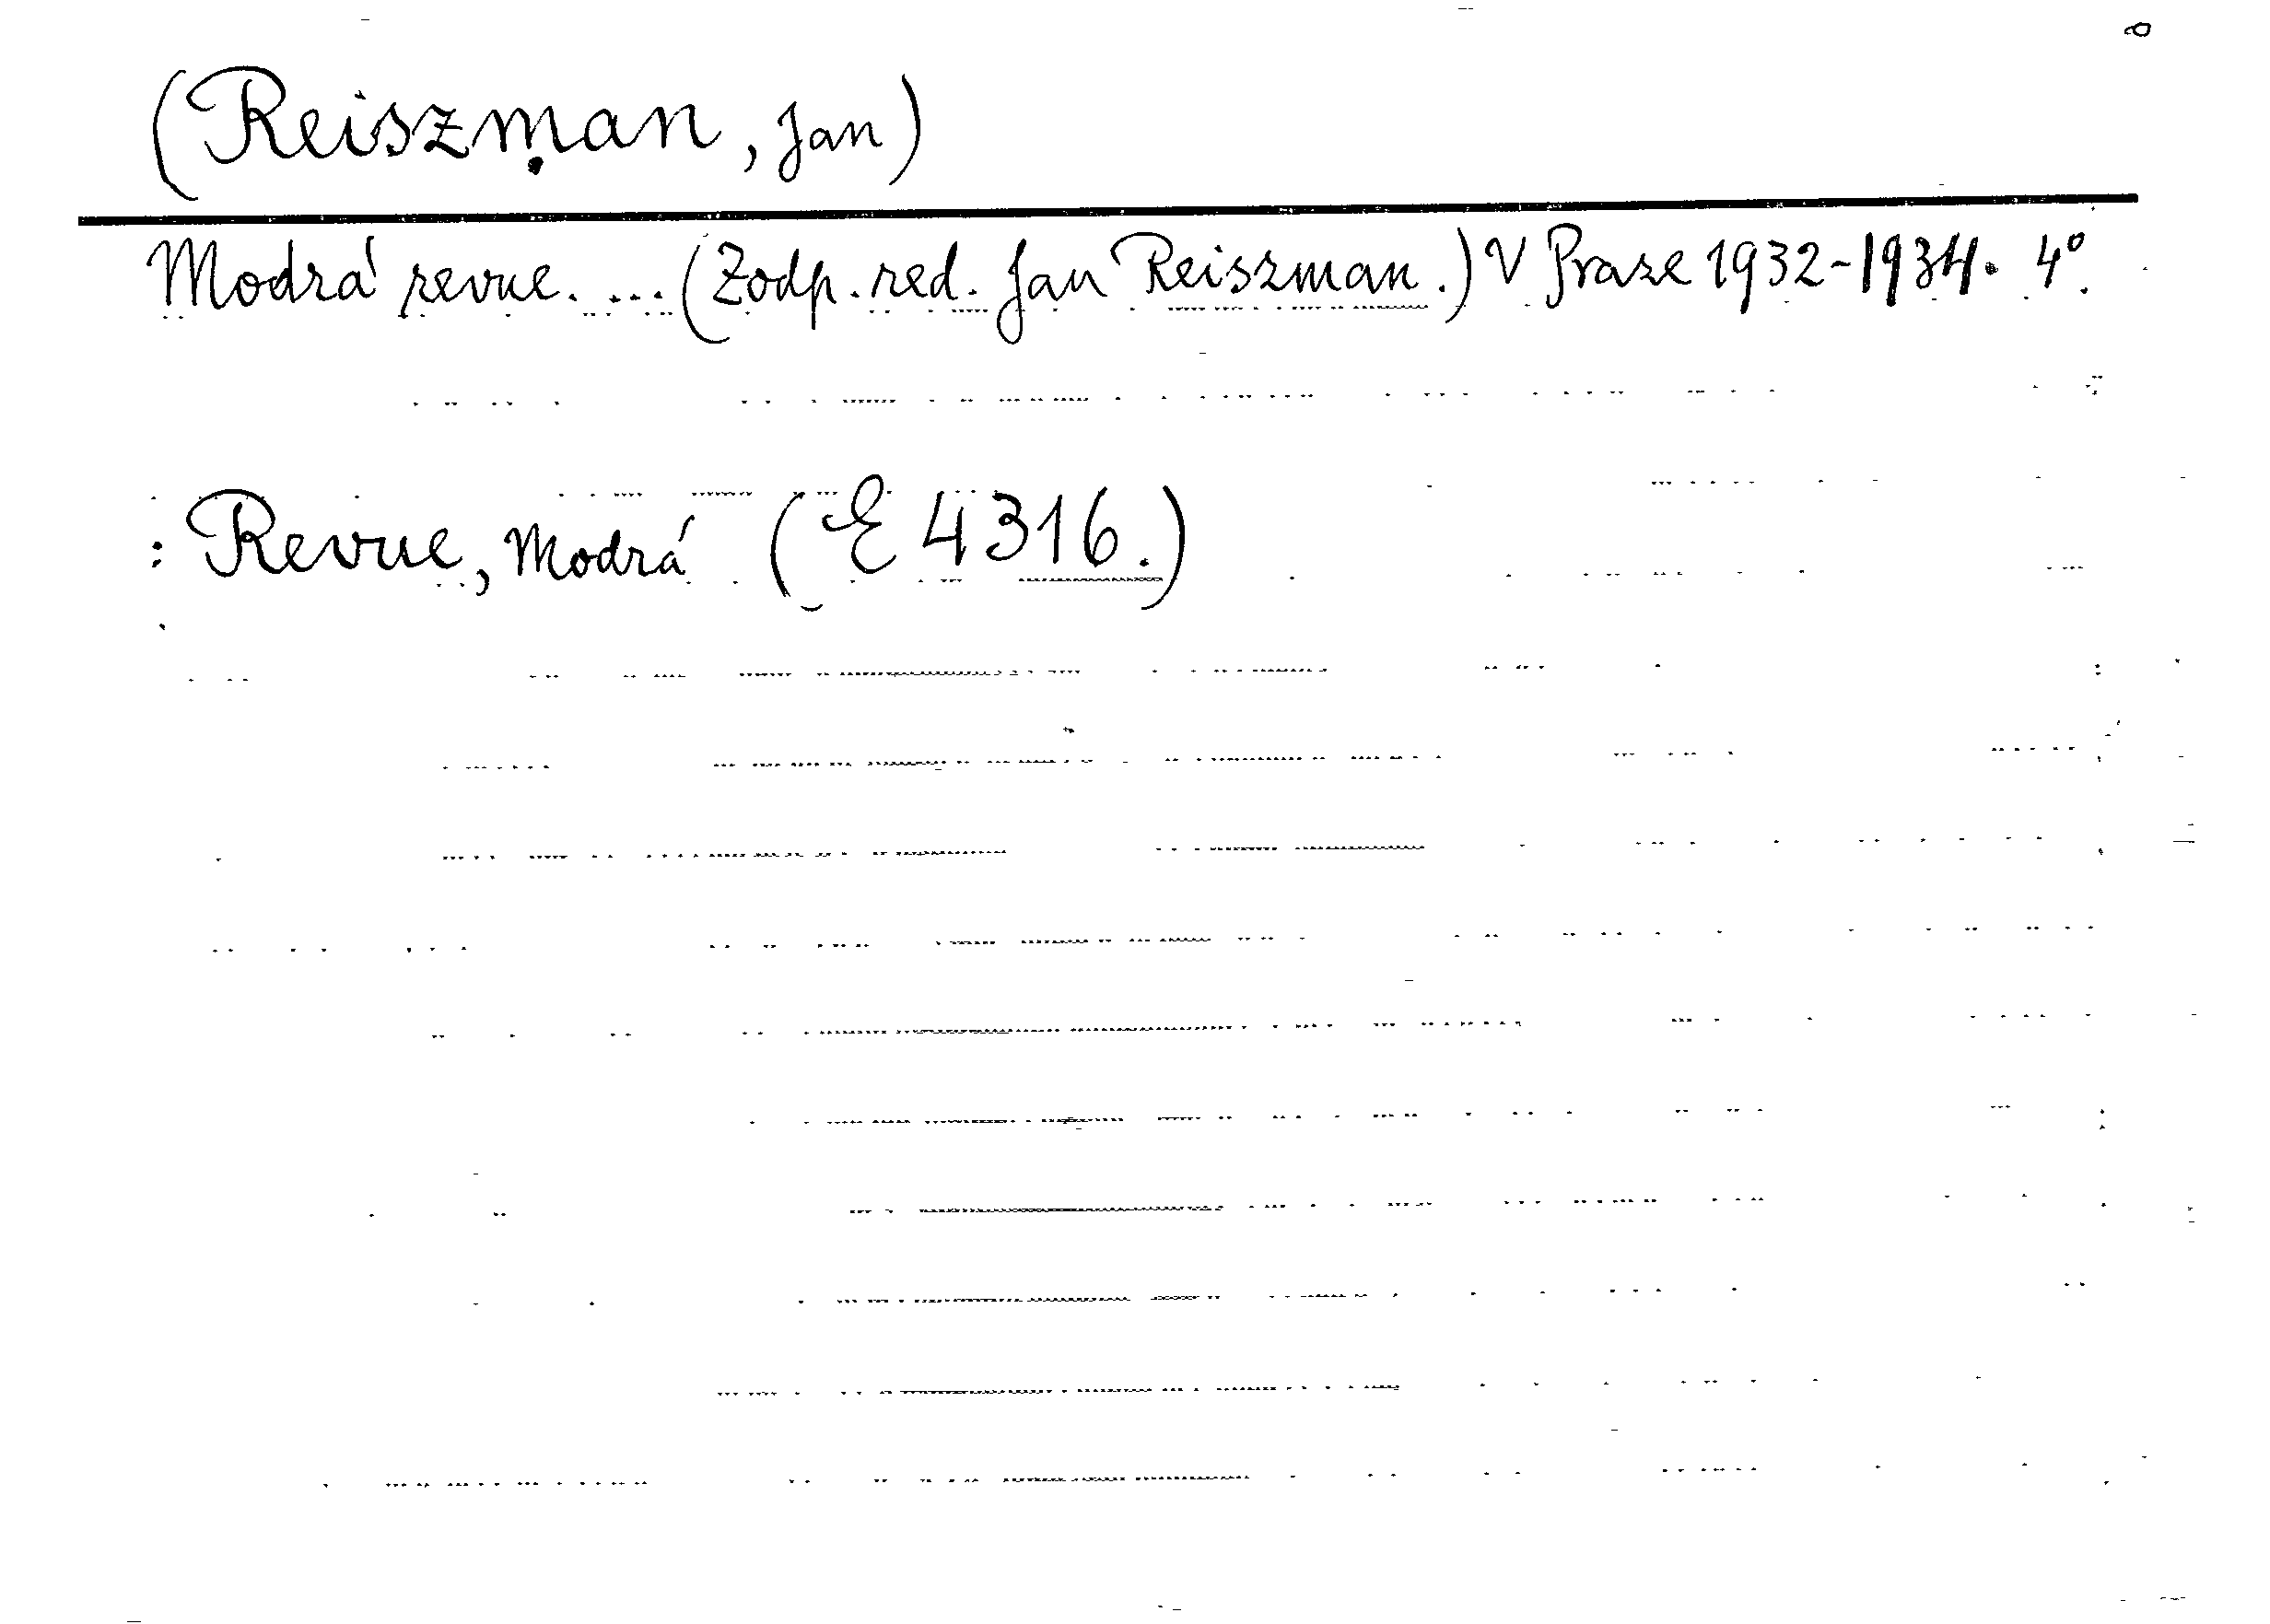 (Reiszman, Jan)
Modrá revue. ... (Zodp. red. Jan Reiszman.) V Praze 1932-1934. 4°.
: Revue, Modrá (E 4316.)